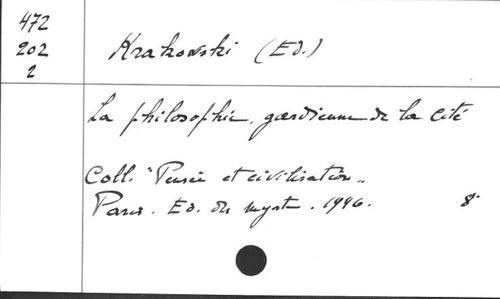 472
202
2
Krakowski (Ed.)
La philosophie, gardienne de la cité
Coll. "Pensée et civilisation„
Paris. Ed. du myrte. 1946. 8°